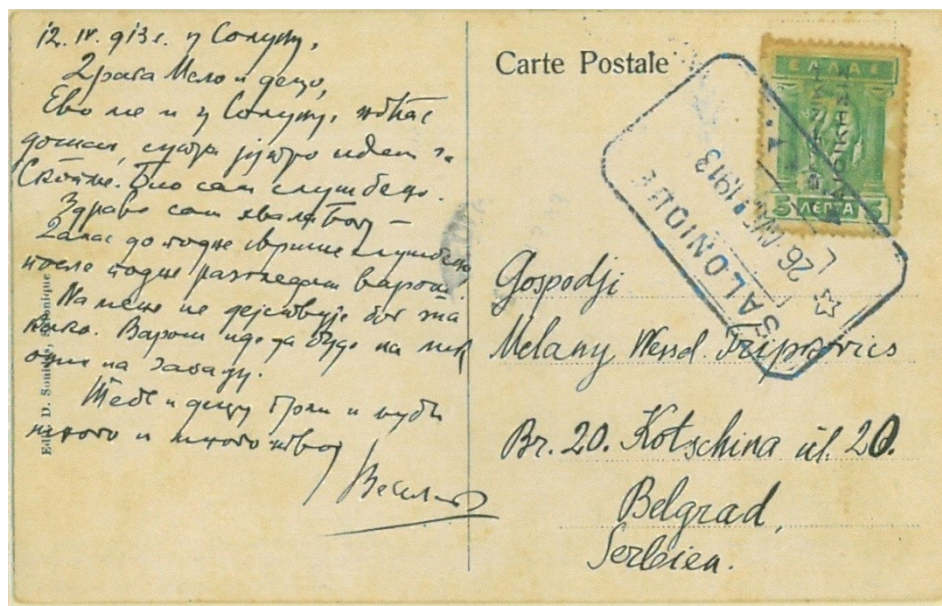 12. IV. 913 г. у Солуну,
Драга Мело и децо,
Ево ме и у Солуну, ноћас
дошао, сутра јутро идем за
Скопље. Био сам службено.
Здраво сам хвала богу –
Данас до подне свршио службено
после подне разгледам варош.
На мене не дејствује бог зна
како. Варош иде да буде на
на Западу.
Тебе и децу грли и љуби
много и много твој
Веселин
Edit. D. Salonique
Carte Postale
ΕΛΛΑΣ
5 ΛΕΠΤΑ 5
SALONIQUE
26 1913
Gospodji
Melany Wessel. Tripkovics
Br. 20. Kotschina ul. 20.
Belgrad,
Serbien.